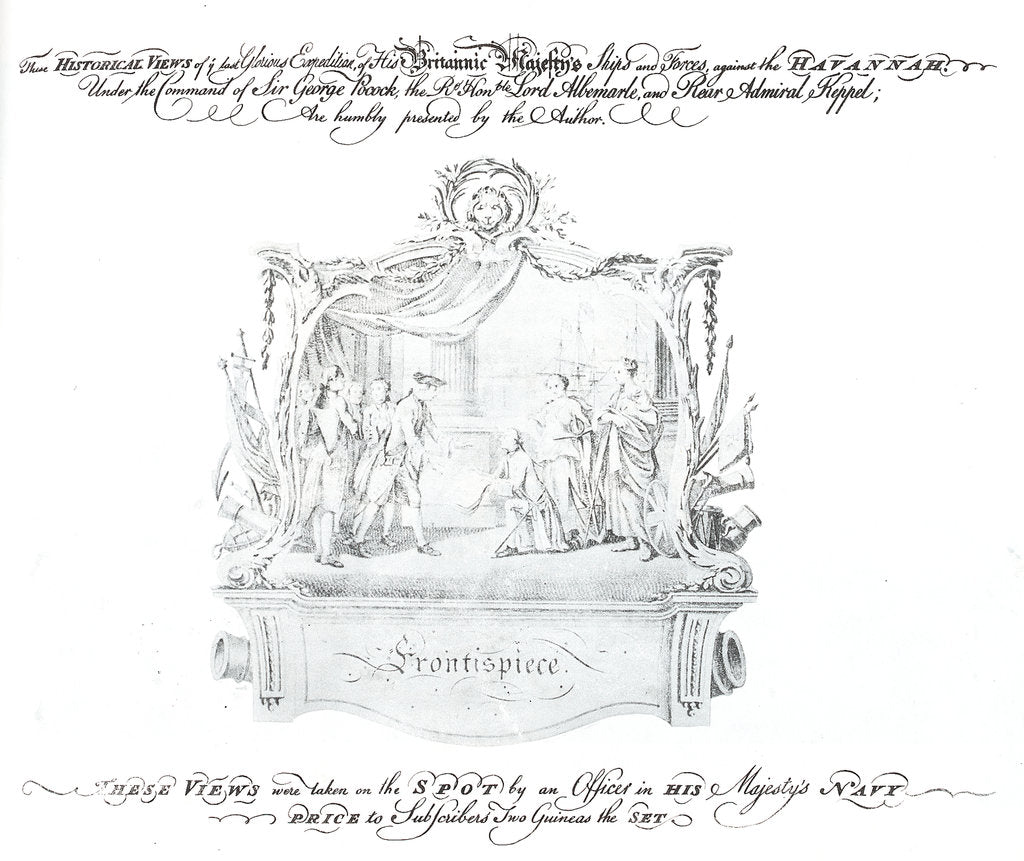 These HISTORICAL VIEWS of yͤ last Glorious Expedition, of His Britannic Majesty's Ships and Forces, against the HAVANNAH.
Under the Command of Sir George Pocock, the Rᵗ. Honᵇˡᵉ Lord Albemarle, and Rear Admiral Keppel;
Are humbly presented by the Author.
Frontispiece.
THESE VIEWS were taken on the SPOT by an Officer in HIS Majesty's NAVY
PRICE to Subſcribers Two Guineas the SET.